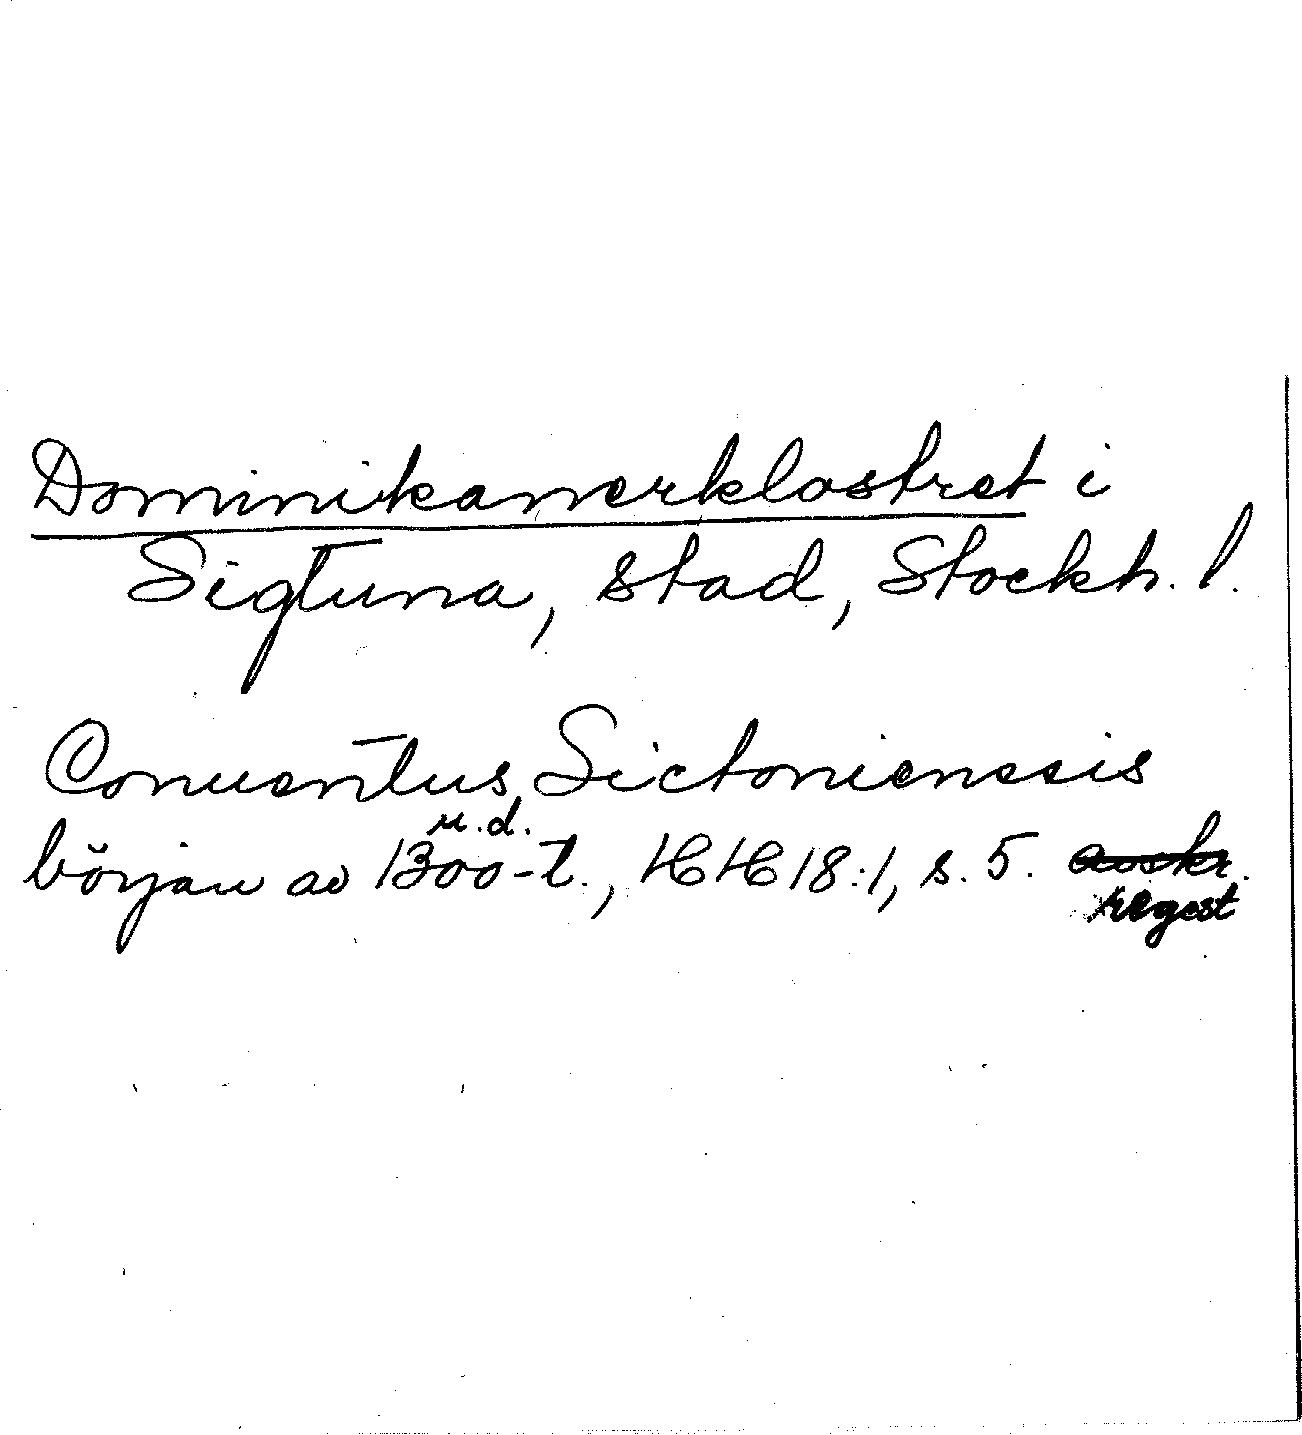 Dominikanerklostret i
Sigtuna, stad, Stockh. l.
Conuentus Sictoniensis
u.d.
början av 1300-t., HH 18:1, s. 5. avskr.
regest